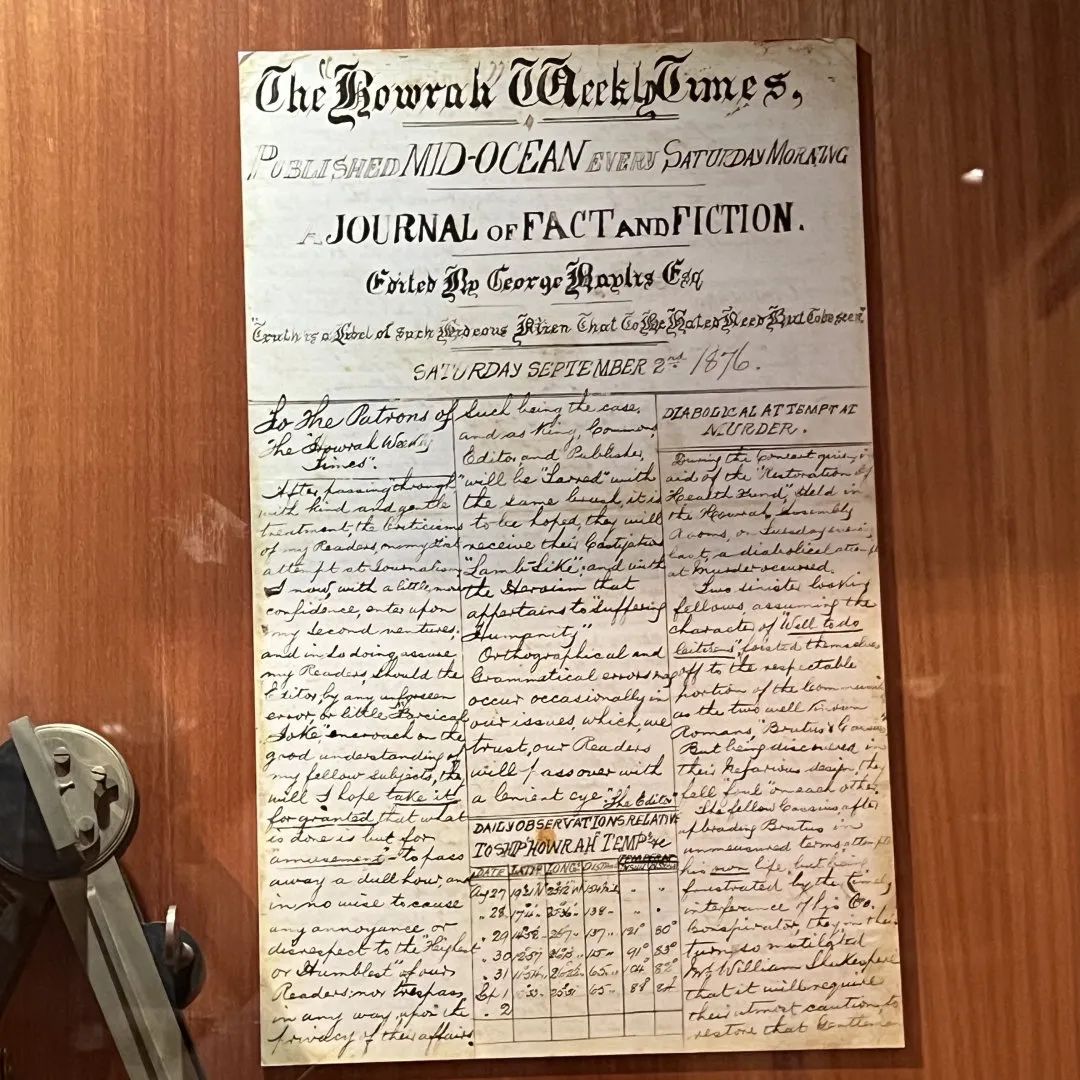 The "Howrah" Weekly Times,
PUBLISHED MID-OCEAN EVERY SATURDAY MORNING
A JOURNAL OF FACT AND FICTION.
Edited By George Baylis Esq
"Truth is a Label of Such Hideous Mien That To Be Hated Need But To be seen"
SATURDAY SEPTEMBER 2nd 1876.
To The Patrons of
"The "Howrah Weekly
Times".
After passing "through"
with kind and gentle
treatment, the Criticisms
of my Readers, on my first
attempt at Journalism
I now, with a little more
confidence, enter upon
my second venture,
and in so doing, assure
my Readers, should the
Editor, by any unforseen
error, or little "Farcical
Joke" encroach on the
good understanding of
my fellow subjects, they
will I hope take it
for granted that what
is done is but for
"amusement"- "to pass
away a dull hour, and
in no wise to cause
any annoyance or
disrespect to the "Highest
or Humblest" of our
Readers; nor trespass
in any way, upon the
privacy of their affairs.
Such being the case,
and as King, Commons,
Editor, and Publisher,
will be "Tarred" with
the same brush, it is
to be hoped, they will
receive their Castigation
"Lamb-Like", and with
the Heroism that
appertains to "Suffering
Humanity"
Orthographical and
Grammatical errors may
occur occasionally in
our issues, which, we
trust, our Readers
will pass over with
a lenient eye. "The Editor"
DAILY OBSERVATIONS RELATIVE
TO SHIP "HOWRAH" TEMP &c
DATE LATde LONGde DIST
Aug 27
" 28 138 "
" 29 137 " 121° 80°
" 30 115 " 91° 83°
" 31 65 " 104° 82°
Sep 1 65 " 88° 84
" 2
DIABOLICAL ATTEMPT AT
MURDER.
During the Concert given in
aid of the "Restoration of
Health Fund", Held in
the Howrah Assembly
Rooms, on Tuesday evening
last, a diabolical attempt
at Murder occurred.
Two sinister looking
fellows, assuming the
character of "Well to do
Citizens", foisted themselves
off to the respectable
portion of the Community
as the two well known
Romans, "Brutus & Cassius"
But being discovered in
their Nefarious design, they
fell "foul" on each other.
The fellow Cassius, after
upbrading Brutus in
unmeasured terms attempted
his own life, but being
frustrated by the timely
interferance of his Co.
Conspirator, they in their
turn, so mutilated
Mr William Shakespere
that it will require
their utmost caution, to
restore that Gentleman